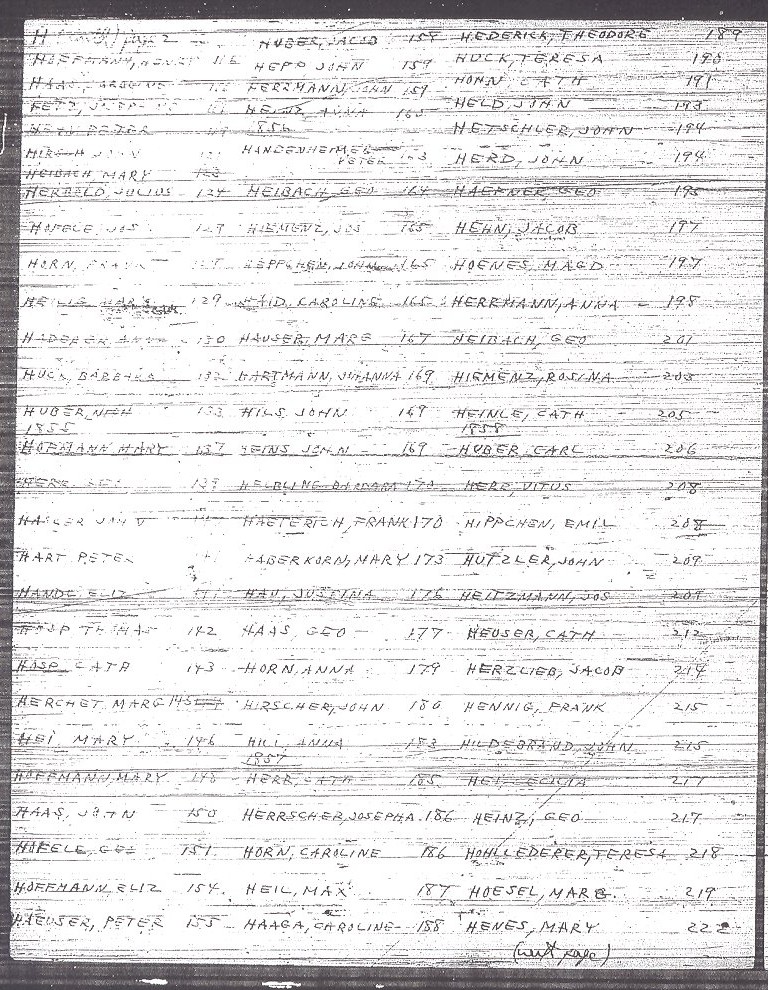 H page 2
HOFFMANN, HENRY 116
HAAS, CAROLINE
PETER
HIRSCH JOHN
HEIBACH MARY 123
HERBOLD, JULIUS 124
HOFELE, JOS 127
HORN, FRANK
HEILIG MARY 129
HADERER, ANNA 130
HUCK, BARBARA 132
HUBER, 133
1855
HOFMANN MARY 137
139
HASLER JOHN
HART PETER
HANDL ELIZ
HOSP THOMAS 142
HOSP CATH 143
HERCHET MARG 145
HEI, MARY 146
HOFFMANN, MARY 148
HAAS, JOHN 150
HOFELE, GEO 151
HOFFMANN, ELIZ 154
HAEUSER, PETER 155
HUBER, JACOB 159
HEPP JOHN 159
FERRMANN, JOHN 159
HEINZ, ANNA 160
1856
HANDENHEIMER
PETER 163
HEIBACH, GEO 164
HIEMENZ, JOS 165
HEPPCHEN, JOHN 165
HAID, CAROLINE 165
HAUSER, MARG 167
HARTMANN, JOHANNA 169
HILS JOHN 169
HEINS JOHN 169
HELBLING BARBARA 170
HAETERICH, FRANK 170
HABERKORN, MARY 173
HAU, JUSTINA 176
HAAS, GEO 177
HORN, ANNA 179
HIRSCHER, JOHN 180
ANNA 183
1857
HERR, CATH 185
HERRSCHER, JOSEPHA 186
HORN, CAROLINE 186
HEIL, MAX 187
HAAGA, CAROLINE 188
HEDERICK, THEODORE 189
HUCK, TERESA 190
HOHN CATH 191
HELD, JOHN 193
HETSCHLER, JOHN 194
HERD, JOHN 194
HAEFNER, GEO 195
HEHN, JACOB 197
HOENES, MAGD 197
HERRMANN, ANNA 198
HEIBACH, GEO 201
HIEMENZ, ROSINA 203
HEINLE, CATH 205
1858
HUBER, CARL 206
HERR, VITUS 208
HIPPCHEN, EMIL 208
HUTZLER, JOHN 209
HEITZMANN, JOS 209
HEUSER, CATH 212
HERZLIEB, JACOB 214
HENNIG, FRANK 215
HILDEBRAND, JOHN 215
HEI, CECILIA 217
HEINZ, GEO 217
HOHLLEDERER, TERESA 218
HOESEL, MARG. 219
HENES, MARY 222
(next page)